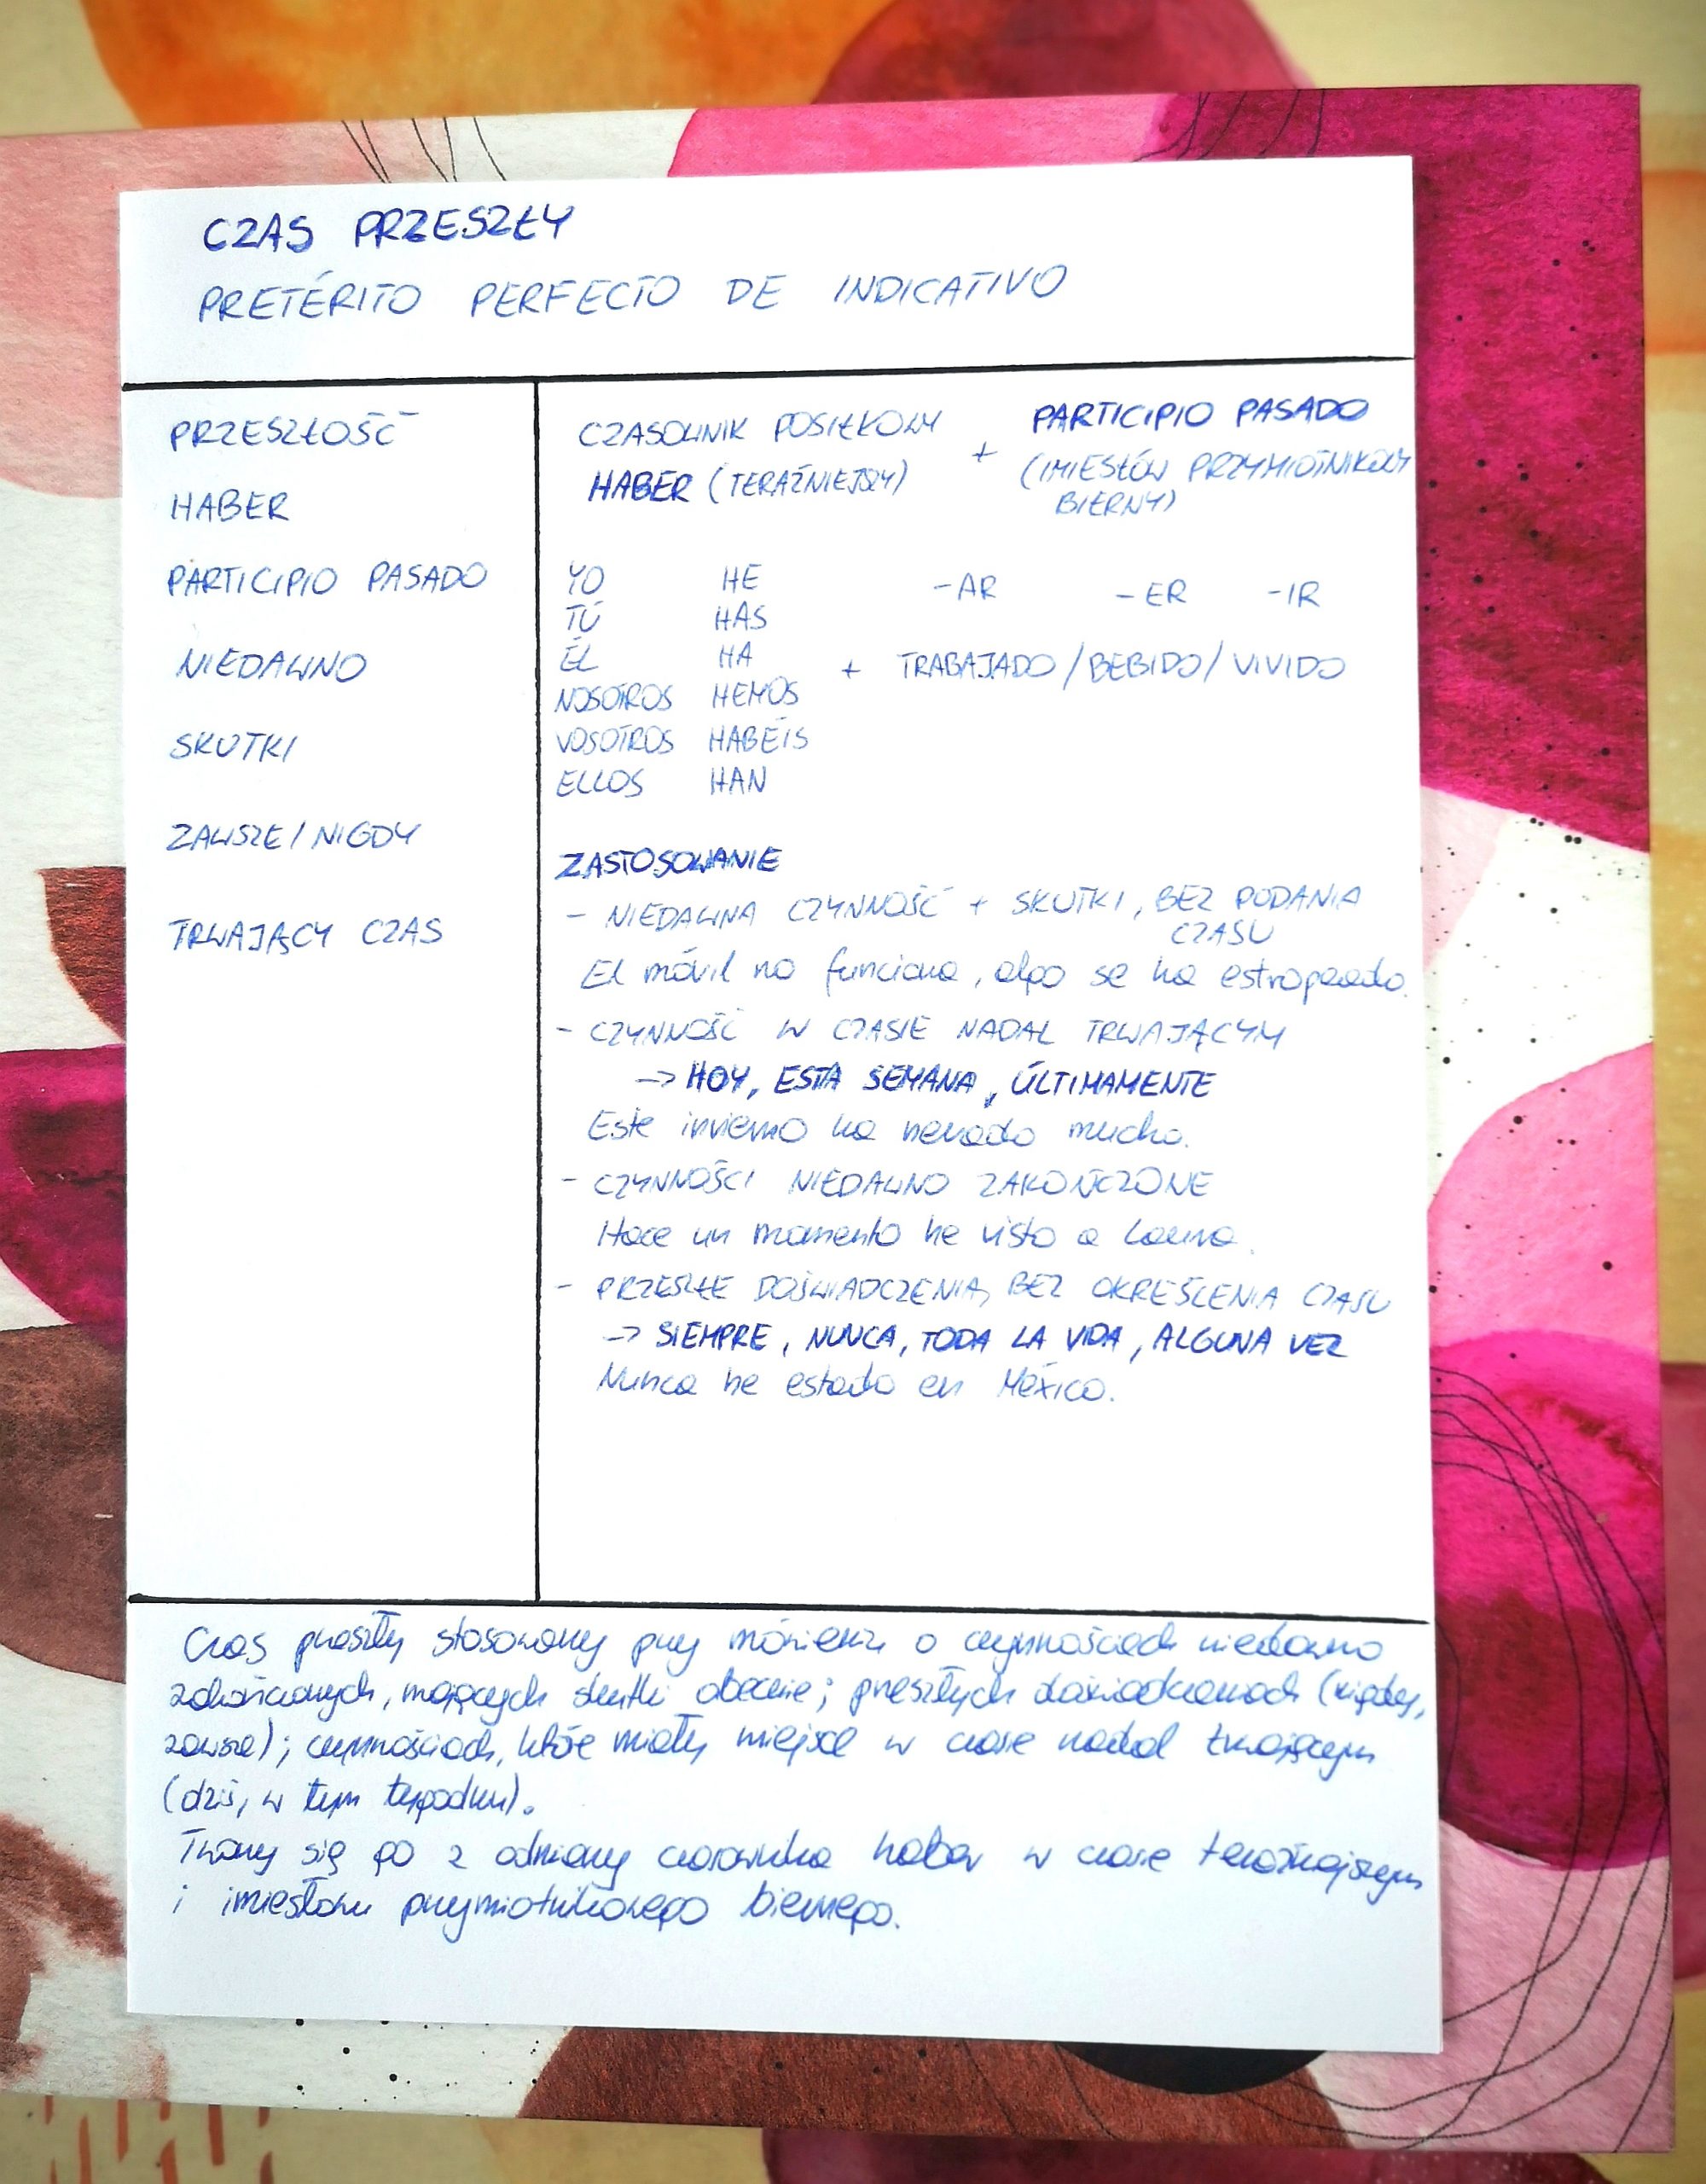 CZAS PRZESZŁY
PRETÉRITO PERFECTO DE INDICATIVO
PRZESZŁOŚĆ
HABER
PARTICIPIO PASADO
NIEDAWNO
SKUTKI
ZAWSZE / NIGDY
TRWAJĄCY CZAS
CZASOWNIK POSIŁKOWY + PARTICIPIO PASADO
HABER (TERAŹNIEJSZY) (IMIESŁÓW PRZYMIOTNIKOWY
BIERNY)
YO HE -AR -ER -IR
TÚ HAS
ÉL HA + TRABAJADO / BEBIDO / VIVIDO
NOSOTROS HEMOS
VOSOTROS HABÉIS
ELLOS HAN
ZASTOSOWANIE
- NIEDAWNA CZYNNOŚĆ + SKUTKI, BEZ PODANIA
CZASU
El móvil no funciona, algo se ha estropeado.
- CZYNNOŚĆ W CZASIE NADAL TRWAJĄCYM
-> HOY, ESTA SEMANA, ÚLTIMAMENTE
Este invierno ha nevado mucho.
- CZYNNOŚCI NIEDAWNO ZAKOŃCZONE
Hace un momento he visto a Laura.
- PRZESZŁE DOŚWIADCZENIA, BEZ OKREŚLENIA CZASU
-> SIEMPRE, NUNCA, TODA LA VIDA, ALGUNA VEZ
Nunca he estado en México.
Czas przeszły stosowany przy mówieniu o czynnościach niedawno
zakończonych, mających skutki obecnie; przeszłych doświadczeniach (nigdy,
zawsze); czynnościach, które miały miejsce w czasie nadal trwającym
(dziś, w tym tygodniu).
Tworzy się go z odmiany czasownika haber w czasie teraźniejszym
i imiesłowu przymiotnikowego biernego.